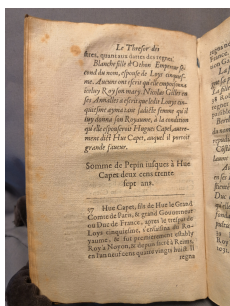 Le Thresor des
stres, quant aux dattes des regnes.
Blanche fille d'Othon Empereur se
cond du nom, espouse de Loys cinquies-
me. Aucuns ont escrit qu'elle empoisonna
iceluy Roy son mary. Nicolas Gilles en
ses Annalles a escrit que ledit Loys cin-
quiesme ayma tant ladicte femme qu'il
luy donna son Royaume, à la condition
qu'elle espouseroit Hugues Capet, autre-
ment dict Hue Capet, auquel il portoit
grande faueur.
Somme de Pepin iusques à Hue
Capet deux cens trente
sept ans.
37 Hue Capet, filz de Hue le Grand
Comte de Paris, & grand Gouuerneur
ou Duc de France, apres le trespas de
Loys cinquiesme, s'ensaisina du Ro-
yaume, & fut premierement estably
Roy a Noyon, & depuis sacré à Reims,
en l'an neuf cens quatre vingts huict. Il
regna